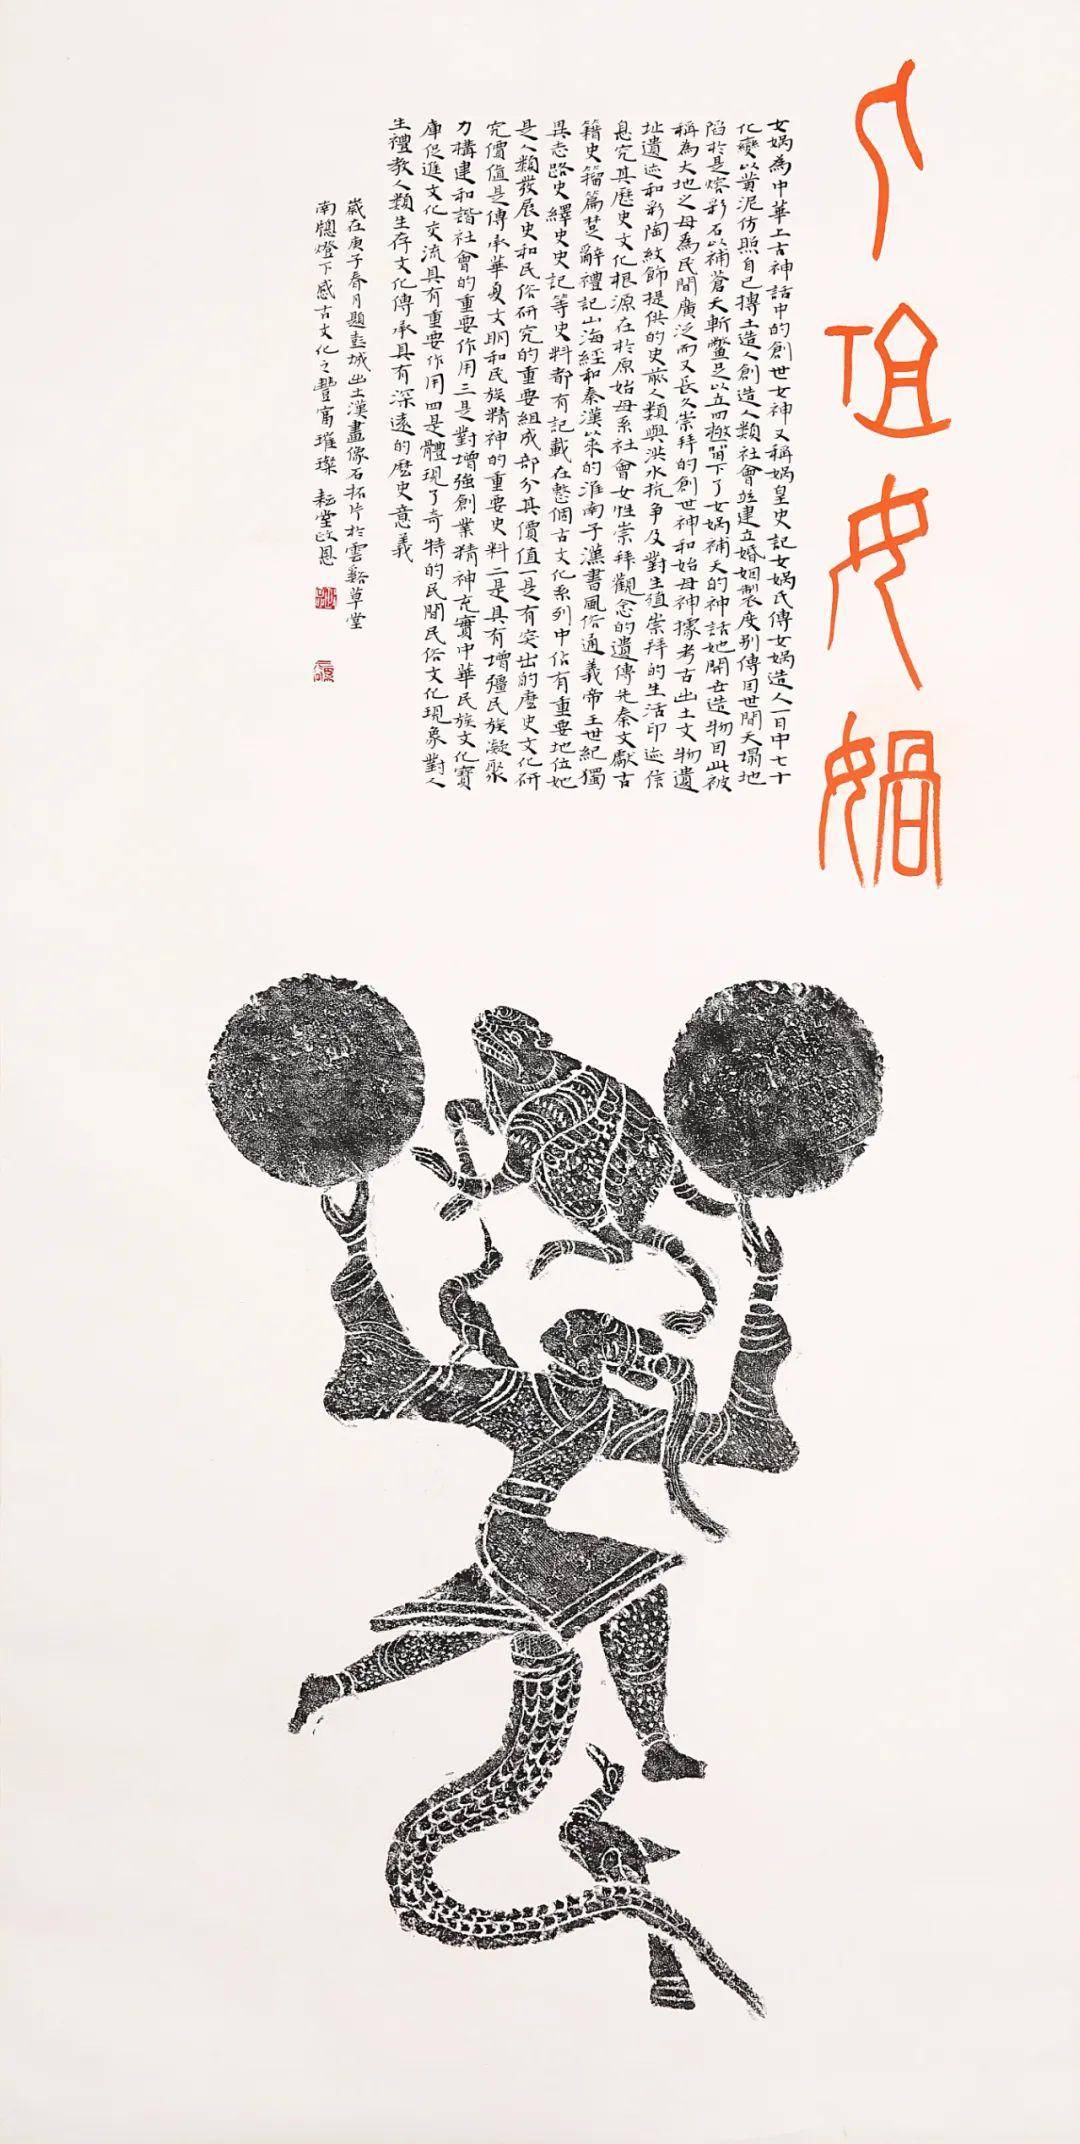 人祖女媧
女媧為中華上古神話中的創世女神又稱媧皇史記女媧氏傳女媧造人一日中七十
化變以黃泥仿照自己摶土造人創造人類社會並建立婚姻製度别傳因世間天塌地
陷於是熔彩石以補蒼天斬鱉足以立四極留下了女媧補天的神話她開世造物因此被
稱為大地之母為民間廣泛而又長久崇拜的創世神和始母神據考古出土文物遺
址遺迹和彩陶紋飾提供的史前人類與洪水抗争及對生殖崇拜的生活印迹信
息究其歷史文化根源在於原始母系社會女性崇拜觀念的遺傳先秦文獻古
籍史籀篇楚辭禮記山海經和秦漢以來的淮南子漢書風俗通義帝王世紀獨
異志路史繹史史記等史料都有記載在整個古文化系列中佔有重要地位她
是人類發展史和民俗研究的重要組成部分其價值一是有突出的歷史文化研
究價值是傳承華夏文明和民族精神的重要史料二是具有增彊民族凝聚
力構建和諧社會的重要作用三是對增強創業精神充實中華民族文化寶
庫促進文化交流具有重要作用四是體現了奇特的民間民俗文化現象對人
生禮教人類生存文化傳承具有深遠的歷史意義
歲在庚子春月題彭城出土漢畫像石拓片於雲谿草堂
南牕燈下感古文化之豐富璀璨 耘堂